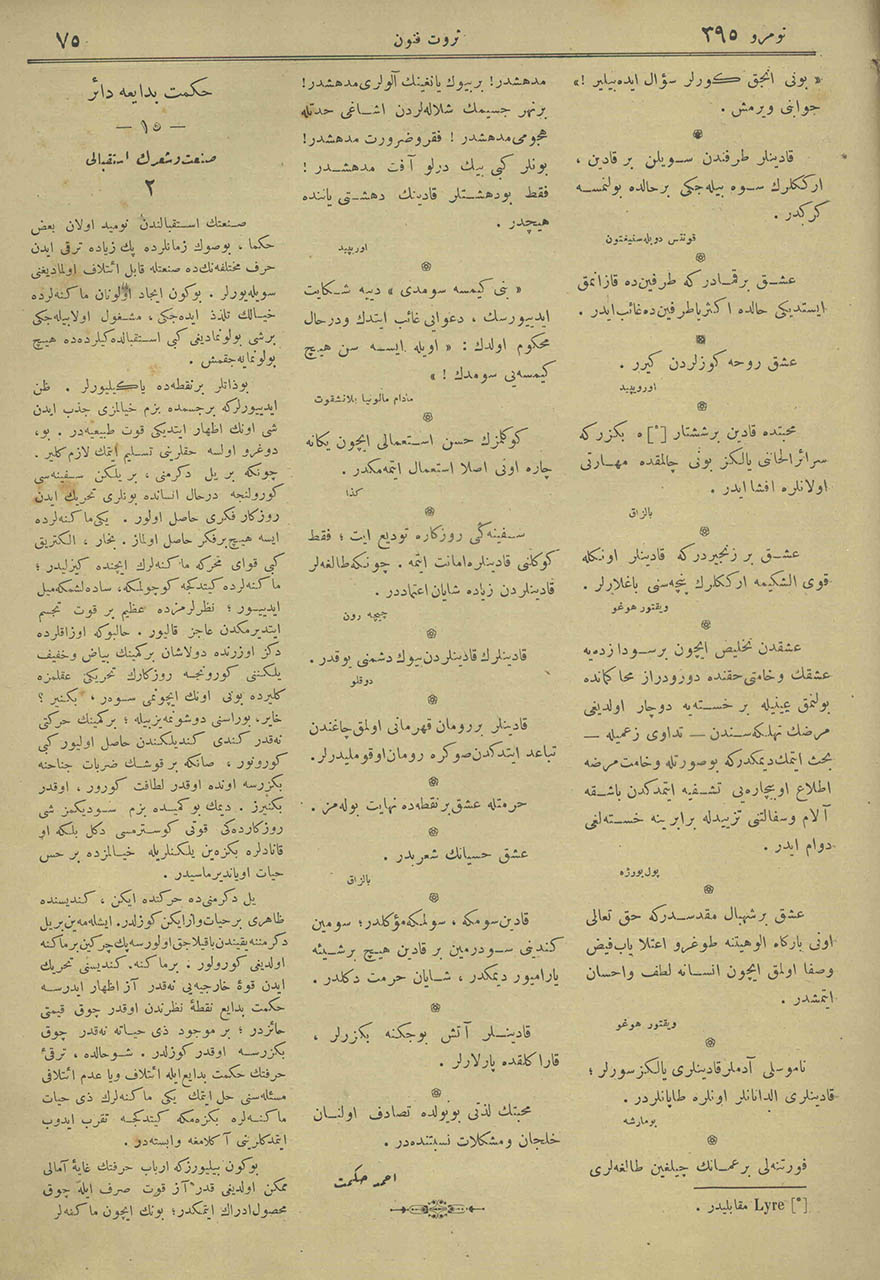 نومرو ٣٩٥
ثروت فنون
٧٥
« بونی انجق كورلر سؤال ایده بیلیر !»
جوابنی ویرمش .
قادینلر طرفندن سویلن بر قادین ،
ارككلرك سوه بیله جكی برحالده بولنمسه
كركدر .
قونتس دویله سنیغتون
عشق برقماردركه طرفین ده قازانمق
ایستدیكی حالده اكثریا طرفین ده غائب ایدر .
عشق روحه كوزلردن كیرر .
اوروپید
محبتده قادین برششتار [*] ه بكزركه
سرائر الحانی یالكز بونی چالمقده مهارتی
اولانلره افشا ایدر .
بالزاق
عشق بر زنجیردركه قادینلر اونكله
قوی الشكیمه ارككلرك پنچه سنی باغلارلر .
ویقتور هوغو
عشقدن تخلیص ایچون برسودازده یه
عشقك وخامتی حقنده دورودراز محاكماتده
بولنمق عینیله بر خسته یه دوچار اولدیغی
مرضك تهلكه سندن — تداوی زعمیله —
بحث ایتمك دیمكدركه بوصورتله وخامت مرضه
اطلاع اوبیچاره یی تشفیه ایتمدكدن باشقه
آلام وسفالتنی تزییدله برابرینه خسته لغی
دوام ایدر .
پول بورژه
عشق بر شهبال مقدسدركه حق تعالی
اونی بارگاه الوهیتنه طوغرو اعتلا یاب فیض
وصفا اولمق ایچون انسانه لطف واحسان
ایتمشدر .
ویقتور هوغو
ناموسلی آدملر قادینلری یالكز سورلر ؛
قادینلری الدانانلر اونلره طاپانلردر .
بومارشه
فورتنه لی برعمانك چیلغین طالغه لری
[*] Lyre مقابلیدر .
مدهشدر! بربیوك یانغینك آلولری مدهشدر!
برنهر جسیمك شلاله لردن اشاغی حدتله
هجومی مدهشدر ! فقر وضرورت مدهشدر!
بونلر كبی بیك درلو آفت مدهشدر !
فقط بودهشتلر قادینك دهشتی یاننده
هیچدر .
اوریپید
« بنی كیمسه سومدی » دییه شكایت
ایدییورسك ، دعوایی غائب ایتدك ودرحال
محكوم اولدك : « اویله ایسه سن هیچ
كیمسه یی سومدك ! »
مادام مالونیا بلانشقوت
كوكلزك حسن استعمالی ایچون یكانه
چاره اونی اصلا استعمال ایتمه مكدر .
كذا
سفینه گی روزكاره تودیع ایت ؛ فقط
كوكلنی قادینلره امانت ایتمه . چونكه طالغه لر
قادینلردن زیاده شایان اعتماددر .
چیچه رون
قادینلرك قادینلردن بیوك دشمنی یوقدر .
دوقلو
قادینلر بررومان قهرمانی اولمق چاغندن
تباعد ایتدكدن صوكره رومان اوقوملیدرلر .
حرمتله عشق برنقطه ده نهایت بوله مز .
عشق حسیاتك شعریدر .
بالزاق
قادین سومكه ، سولمكه مؤكلدر ؛ سومین
كندینی سودرمین بر قادین هیچ برشیئه
یارامیور دیمكدر ، شایان حرمت دكلدر .
قادینلر آتش بوجكنه بكزرلر ،
قارا كلقده پارلارلر .
محبتك لذتی بویولده تصادف اولنان
خلجان ومشكلات نسبتنده در .
احمد حكمت
حكمت بدایعه دائر
— ١٥ —
صنعت وشعرك استقبالی
٢
صنعتك استقبالندن نومید اولان بعض
حكما ، بوصوك زمانلرده پك زیاده ترقی ایدن
حرف مختلفه نك ده صنعتله قابل ائتلاف اولمادیغنی
سویله یورلر . بوكون ایجاد اولونان ماكنه لرده
خیالك تلذذ ایده جكی ، مشغول اولابیله جكی
برشی بولونمادیغی كبی استقبالده كیلرده ده هیچ
بولونمایه جقمش .
بوذاتلر برنقطه ده یاكیلیورلر . ظن
ایدییورلركه برجسمده بزم خیالمزی جذب ایدن
شی اونك اظهار ایتدیكی قوت طبیعیه در . بو،
دوغرو اولسه حقلرینی تسلیم ایتمك لازم كلیر .
چونكه بر یل دكرمنی ، بر یلكن سفینه سی
كورولنجه درحال انسانده بونلری تحریك ایدن
روزكار فكری حاصل اولور . یكی ماكنه لرده
ایسه هیچ برفكر حاصل اولماز . بخار ، الكتریق
كبی قوای محركه ماكنه لرك ایچنده كیزلیدر ؛
ماكنه لرده كیتدكجه كوچولمكه، ساده لشمكه میل
ایدییور ؛ نظرلرمزده عظیم بر قوت تجسم
ایتدیرمكدن عاجز قالیور . حالبوكه اوزاقلرده
دكز اوزرنده دولاشان بركمینك بیاض وخفیف
یلكننی كورونجه روزكارك تحریكی عقلمزه
كلیرده بونی اونك ایچونمی سوه ر ، بكنیر ؟
خایر، بوراسنی دوشونمه یز بیله ؛ بركمینك حركتی
نه قدر كندی كندیلكندن حاصل اولیور كبی
كورونور ، صانكه بر قوشك ضربات جناحنه
بكزرسه اونده اوقدر لطافت كورور ، اوقدر
بكنیرز . دیمك بوكمیده بزم سودیكمز شی
روزكارده كی قوتی كوسترمسی دكل بلكه او
قنادلره بكزه ین یلكنلریله خیالمزده بر حس
حیات اویاندیرماسیدر .
یل دكرمنی ده حركتده ایكن ، كندیسنده
ظاهری برحیات وارایكن كوزلدر. ایشله مه ین بریل
دكرمننه یقیندن باقیلاجق اولورسه پك چركین برماكنه
اولدیغی كورولور . برماكنه. كندیسنی تحریك
ایدن قوۀ خارجیه یی نه قدر آز اظهار ایدرسه
حكمت بدایع نقطۀ نظرندن اوقدر چوق قیمتی
حائزدر ؛ بر موجود ذی حیاته نه قدر چوق
بكزرسه اوقدر كوزلدر . شوحالده ، ترقیٔ
حرفتك حكمت بدایع ایله ائتلاف ویا عدم ائتلافی
مسئله سنی حل ایتمك یكی ماكنه لرك ذی حیات
ماكنه لره بكزه مكه كیتدكجه تقرب ایدوب
ایتمدكلرینی آكلامغه وابسته در .
بوكون بیلیورزكه ارباب حرفتك غایۀ آمالی
ممكن اولدیغی قدر آز قوت صرف ایله چوق
محصول ادراك ایتمكدر؛ بونك ایچون ماكنه لر